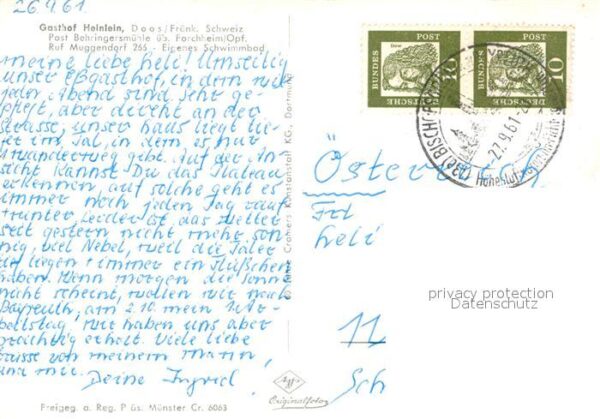 26.9.61
Gasthof Heinlein, Doos/Fränk. Schweiz
Post Behringersmühle üb. Forchheim/Opf.
Ruf Muggendorf 265 - Eigenes Schwimmbad
meine liebe heli! Umseitig
unser Eßgasthof, in dem wir
jeden Abend sind. Sehr ge-
pflegt, aber direkt an der
Strasse, unser haus liegt tie-
fer im Tal, in dem es nur
Wanderweg gibt. Auf der An-
sicht kannst Du das Plateau
erkennen, auf solche geht es
immer noch jeden Tag rauf +
runter. Leider ist das Wetter
seit gestern nicht mehr son-
nig, viel Nebel, weil die Täler
so liegen + immer ein Flüßchen
haben. Wenn morgen die Sonne
nicht scheint, wollen wir nach
Bayreuth, am 2.10. mein
wir haben uns aber
prächtig erholt. Viele liebe
Grüsse von meinem Mann,
und mir. Deine Ingrid
Freigeg. d. Reg. P üs. Münster Cr. 6063
Cramers Kunstanstalt KG., Dortmund
Agfa
Originalfoto
DEUTSCHE BUNDESPOST
10
DEUTSCHE BUNDESPOST
10
-27.9.61-
Österreich
Frl
heli
11
Sch
privacy protection
Datenschutz